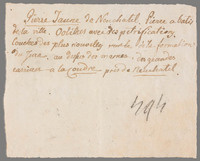 Pierre Jaune de Neuchatel. Pierre a batir
de la ville. Oolithes avec des petrifications.
Couches des plus nouvelles sous la dite formation
du Jura, au dessus des marnes. La grande
carriere a la coudre près de Neuchatel
494